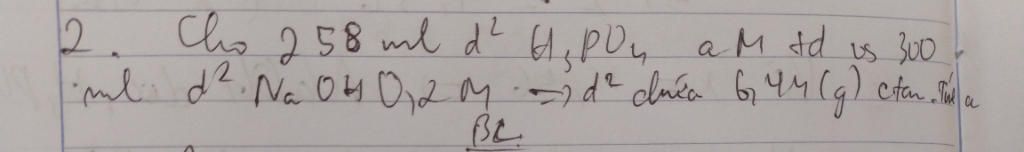 2. Cho 258 ml d² H₃PO₄ a M td vs 300
ml d² NaOH 0,2M => d² chứa 6,44(g) ctan. Tính a
BL